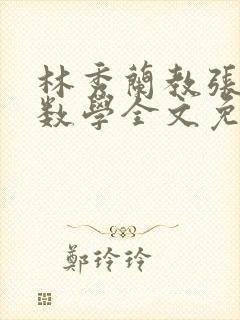 林秀蘭教張
数學全文免
鄭玲玲